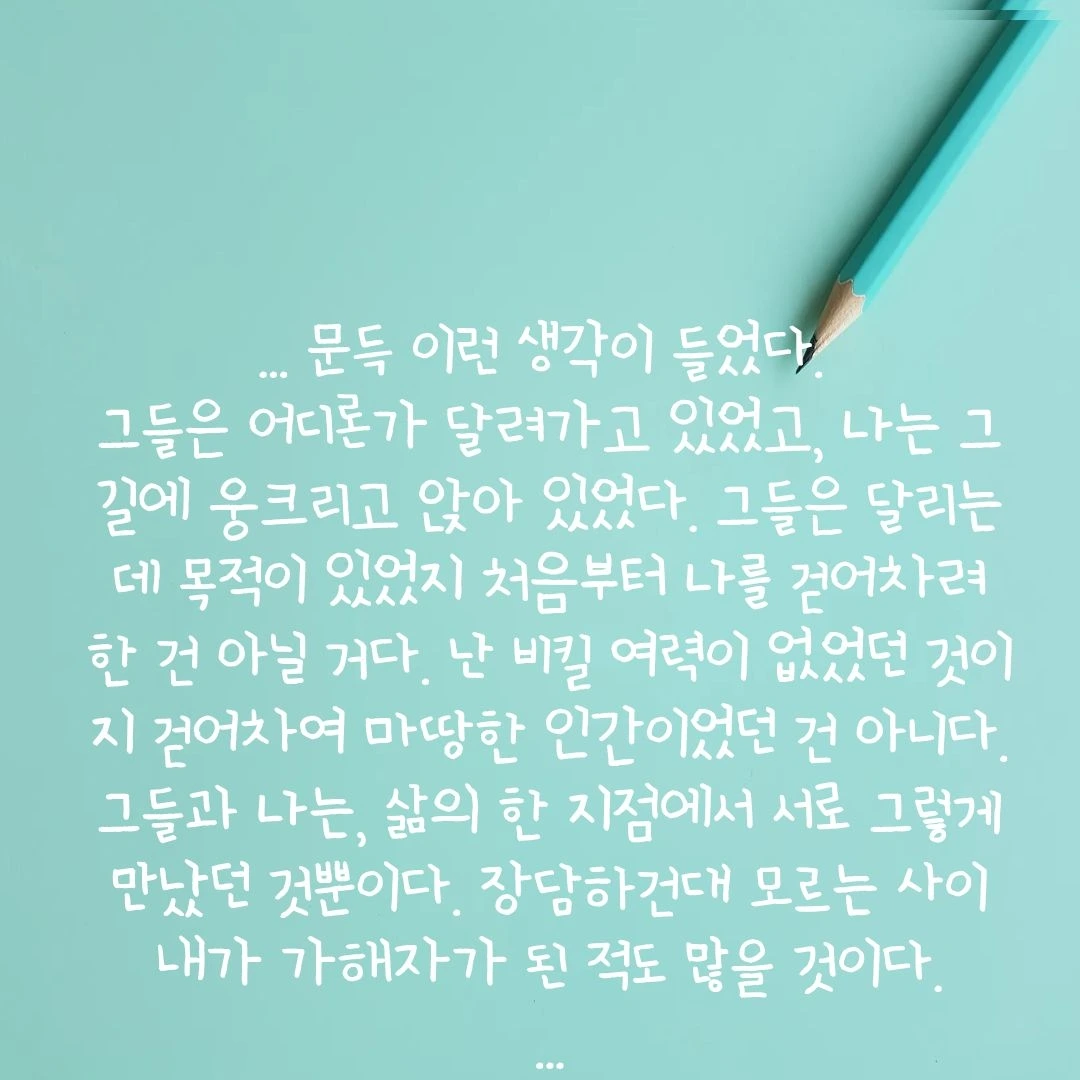 ... 문득 이런 생각이 들었다.
그들은 어디론가 달려가고 있었고, 나는 그
길에 웅크리고 앉아 있었다. 그들은 달리는
데 목적이 있었지 처음부터 나를 걷어차려
한 건 아닐 거다. 난 비킬 여력이 없었던 것이
지 걷어차여 마땅한 인간이었던 건 아니다.
그들과 나는, 삶의 한 지점에서 서로 그렇게
만났던 것뿐이다. 장담하건대 모르는 사이
내가 가해자가 된 적도 많을 것이다.
...